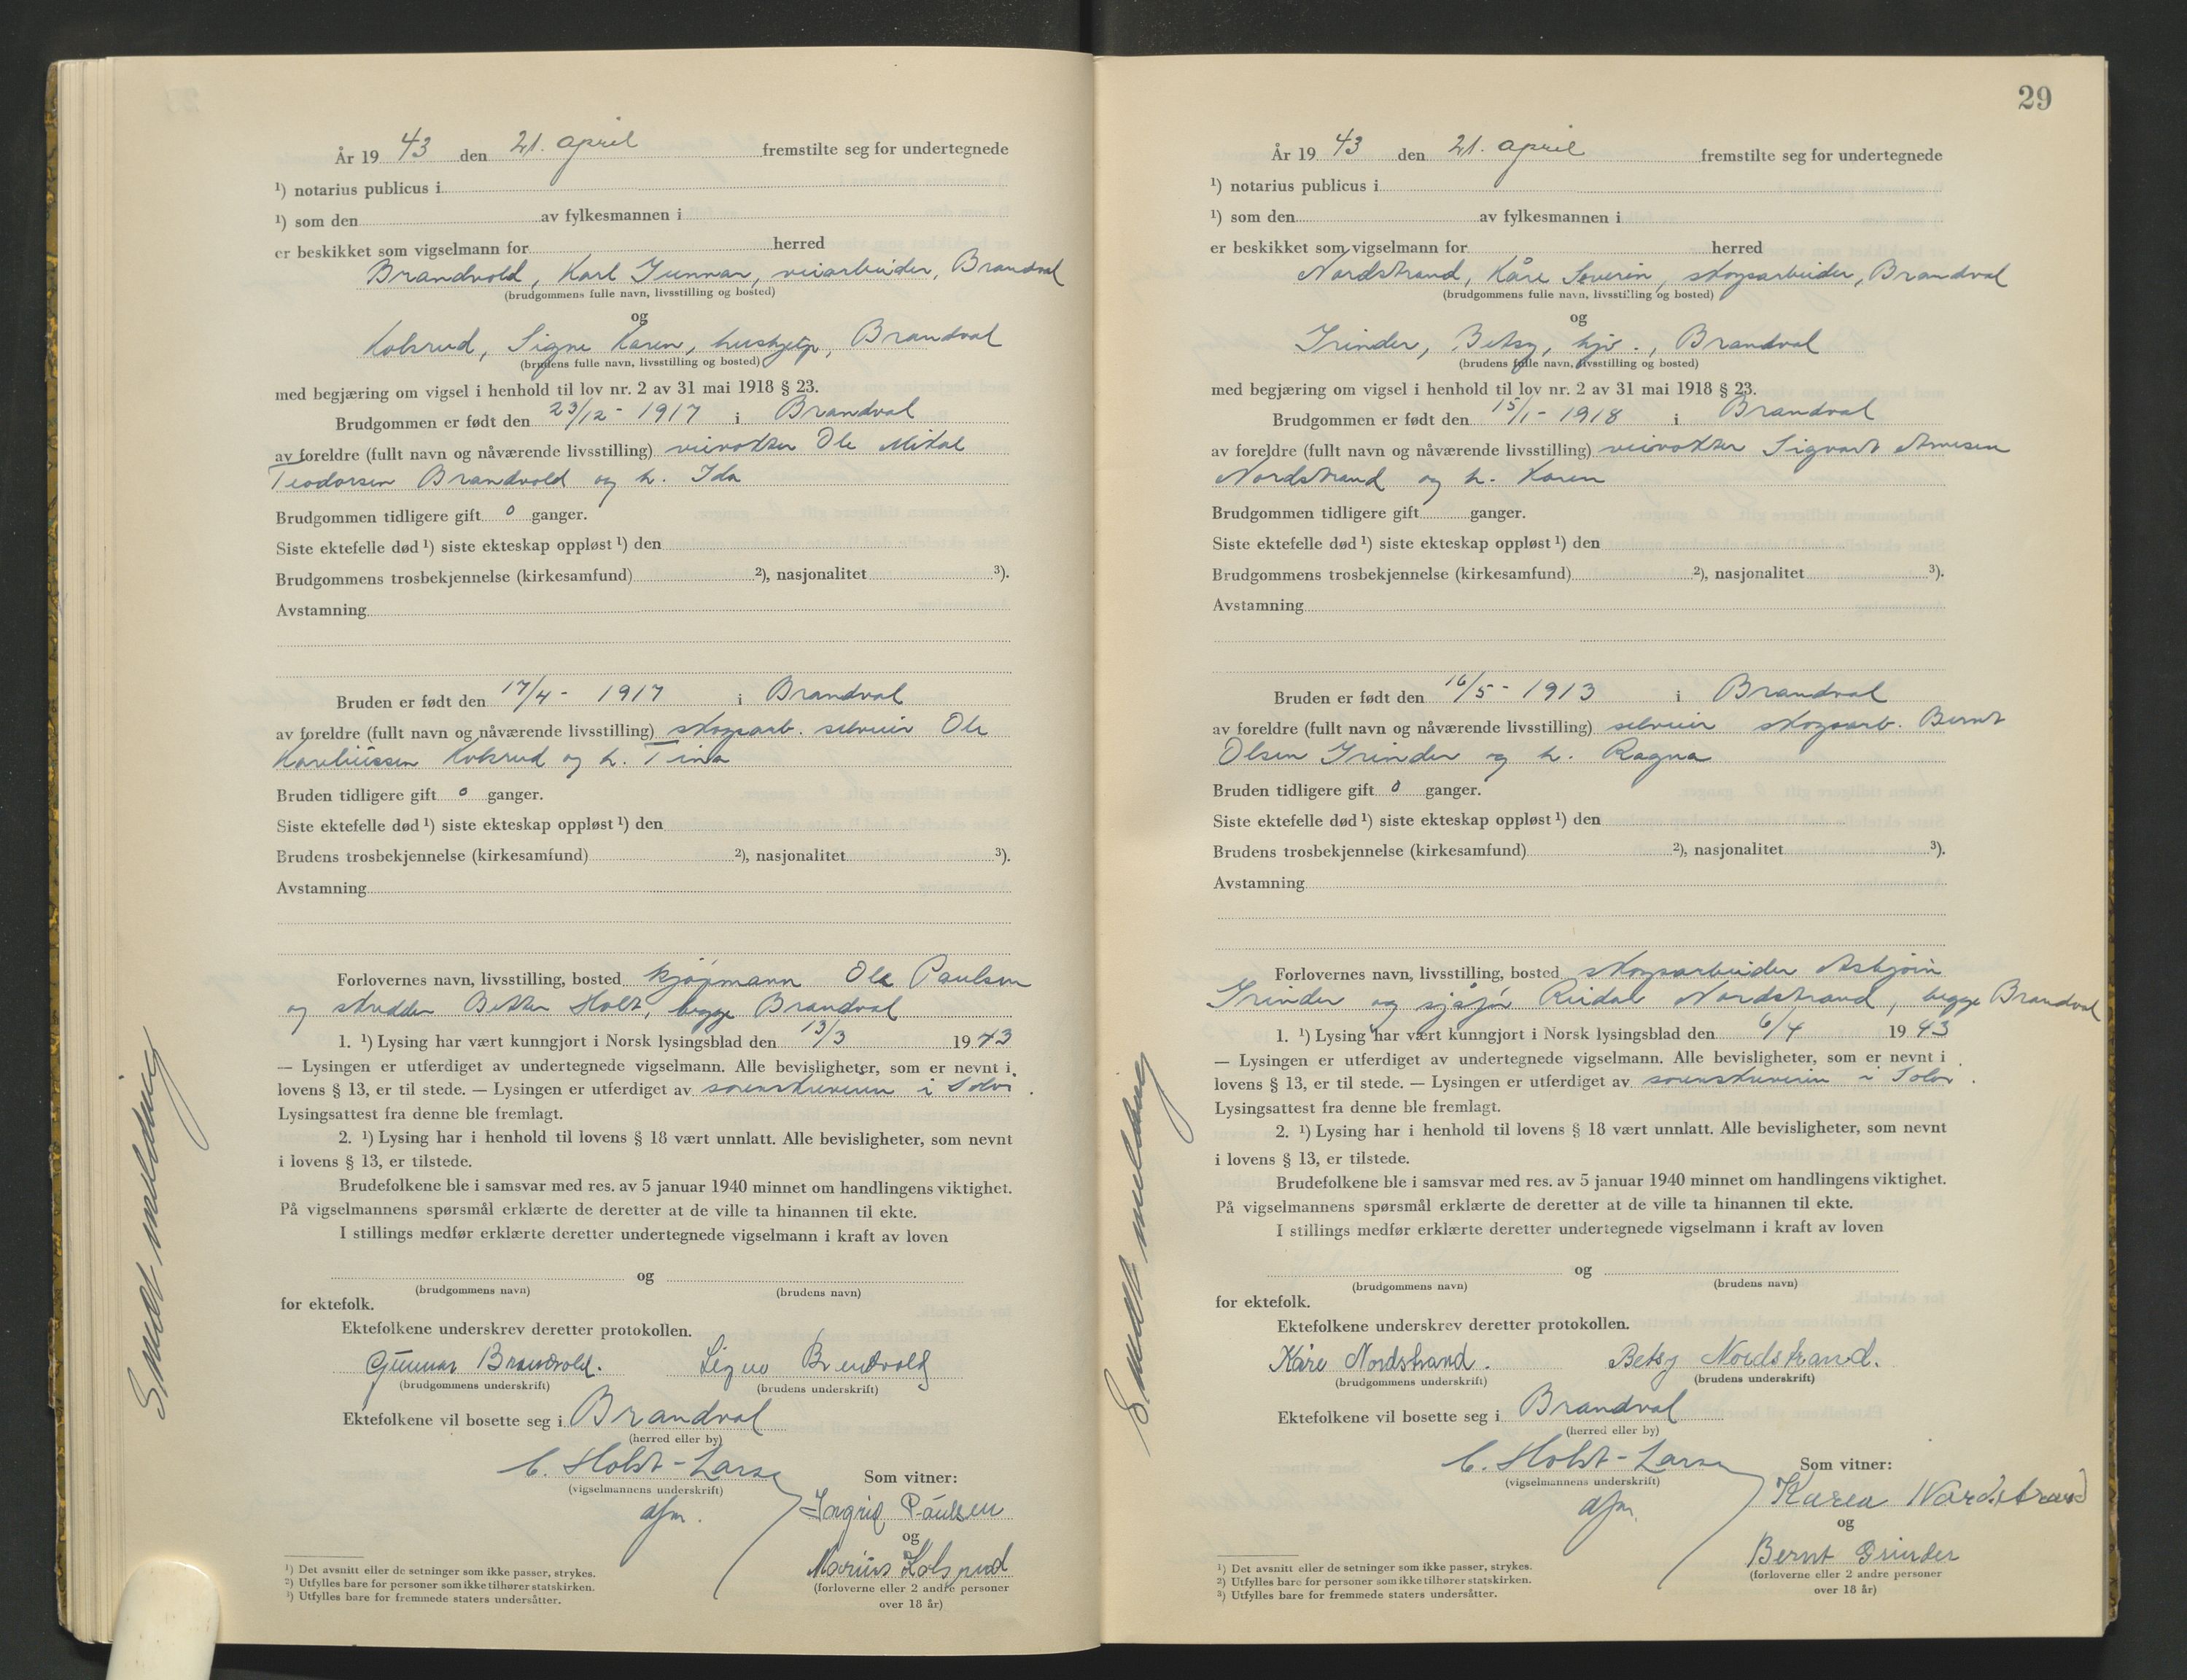 År 19 43 den 21. april fremstilte seg for undertegnede
¹) notarius publicus i
¹) som den av fylkesmannen i
er beskikket som vigselmann for herred
Brandvold, Karl Gunnar, veiarbeider, Brandval
(brudgommens fulle navn, livsstilling og bosted)
og
Kolsrud, Signe Karen, hushjelp, Brandval
(brudens fulle navn, livsstilling og bosted)
med begjæring om vigsel i henhold til lov nr. 2 av 31 mai 1918 § 23.
Brudgommen er født den 23/12 - 1917 i Brandval
av foreldre (fullt navn og nåværende livsstilling) veivokter Ole Mikal
Teodorsen Brandvold og h. Ida
Brudgommen tidligere gift 0 ganger.
Siste ektefelle død ¹) siste ekteskap oppløst ¹) den
Brudgommens trosbekjennelse (kirkesamfund) ²), nasjonalitet ³).
Avstamning
Bruden er født den 17/4 - 1917 i Brandval
av foreldre (fullt navn og nåværende livsstilling) skogsarb. selveier Ole
Kolsrud og h. Tina
Bruden tidligere gift 0 ganger.
Siste ektefelle død ¹) siste ekteskap oppløst ¹) den
Brudens trosbekjennelse (kirkesamfund) ²), nasjonalitet ³).
Avstamning
Forlovernes navn, livsstilling, bosted kjøpmann Ole Paulsen
og Holt, begge Brandval
1. ¹) Lysing har vært kunngjort i Norsk lysingsblad den 13/3 19 43
— Lysingen er utferdiget av undertegnede vigselmann. Alle bevisligheter, som er nevnt i
lovens § 13, er til stede. — Lysingen er utferdiget av sorenskriveren i Solør.
Lysingsattest fra denne ble fremlagt.
2. ¹) Lysing har i henhold til lovens § 18 vært unnlatt. Alle bevisligheter, som nevnt
i lovens § 13, er tilstede.
Brudefolkene ble i samsvar med res. av 5 januar 1940 minnet om handlingens viktighet.
På vigselmannens spørsmål erklærte de deretter at de ville ta hinannen til ekte.
I stillings medfør erklærte deretter undertegnede vigselmann i kraft av loven
og
(brudgommens navn) (brudens navn)
for ektefolk.
Ektefolkene underskrev deretter protokollen.
Gunnar Brandvold. Signe Brandvold
(brudgommens underskrift) (brudens underskrift)
Ektefolkene vil bosette seg i Brandval
(herred eller by)
C. Holst-Larsen
(vigselmannens underskrift)
dfm.
Som vitner:
Ingrid Paulsen
og
Marius Kolsrud
(forloverne eller 2 andre personer
over 18 år)
¹) Det avsnitt eller de setninger som ikke passer, strykes.
²) Utfylles bare for personer som ikke tilhører statskirken.
³) Utfylles bare for fremmede staters undersåtter.
Sendt melding
29
År 19 43 den 21. april fremstilte seg for undertegnede
¹) notarius publicus i
¹) som den av fylkesmannen i
er beskikket som vigselmann for herred
Nordstrand, Kåre Severin, skogsarbeider, Brandval
(brudgommens fulle navn, livsstilling og bosted)
og
Grinder, Betsy, hjv., Brandval
(brudens fulle navn, livsstilling og bosted)
med begjæring om vigsel i henhold til lov nr. 2 av 31 mai 1918 § 23.
Brudgommen er født den 15/1 - 1918 i Brandval
av foreldre (fullt navn og nåværende livsstilling) veivokter Sigvart Arnesen
Nordstrand og h. Karen
Brudgommen tidligere gift ganger.
Siste ektefelle død ¹) siste ekteskap oppløst ¹) den
Brudgommens trosbekjennelse (kirkesamfund) ²), nasjonalitet ³).
Avstamning
Bruden er født den 16/5 - 1913 i Brandval
av foreldre (fullt navn og nåværende livsstilling) selveier skogsarb. Bernt
Olsen Grinder og h. Ragna
Bruden tidligere gift 0 ganger.
Siste ektefelle død ¹) siste ekteskap oppløst ¹) den
Brudens trosbekjennelse (kirkesamfund) ²), nasjonalitet ³).
Avstamning
Forlovernes navn, livsstilling, bosted skogsarbeider Asbjørn
Grinder og sjåfør Reidar Nordstrand, begge Brandval
1. ¹) Lysing har vært kunngjort i Norsk lysingsblad den 6/4 19 43
— Lysingen er utferdiget av undertegnede vigselmann. Alle bevisligheter, som er nevnt i
lovens § 13, er til stede. — Lysingen er utferdiget av sorenskriveren i Solør.
Lysingsattest fra denne ble fremlagt.
2. ¹) Lysing har i henhold til lovens § 18 vært unnlatt. Alle bevisligheter, som nevnt
i lovens § 13, er tilstede.
Brudefolkene ble i samsvar med res. av 5 januar 1940 minnet om handlingens viktighet.
På vigselmannens spørsmål erklærte de deretter at de ville ta hinannen til ekte.
I stillings medfør erklærte deretter undertegnede vigselmann i kraft av loven
og
(brudgommens navn) (brudens navn)
for ektefolk.
Ektefolkene underskrev deretter protokollen.
Kåre Nordstrand. Betsy Nordstrand.
(brudgommens underskrift) (brudens underskrift)
Ektefolkene vil bosette seg i Brandval
(herred eller by)
C. Holst-Larsen
(vigselmannens underskrift)
dfm.
Som vitner:
Karen Nordstrand
og
Bernt Grinder
(forloverne eller 2 andre personer
over 18 år)
¹) Det avsnitt eller de setninger som ikke passer, strykes.
²) Utfylles bare for personer som ikke tilhører statskirken.
³) Utfylles bare for fremmede staters undersåtter.
Sendt melding